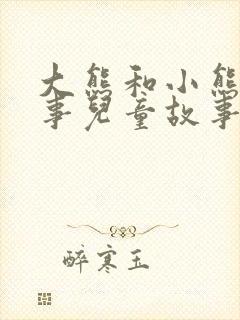 大熊和小熊
事兒童故事
醉寒玉